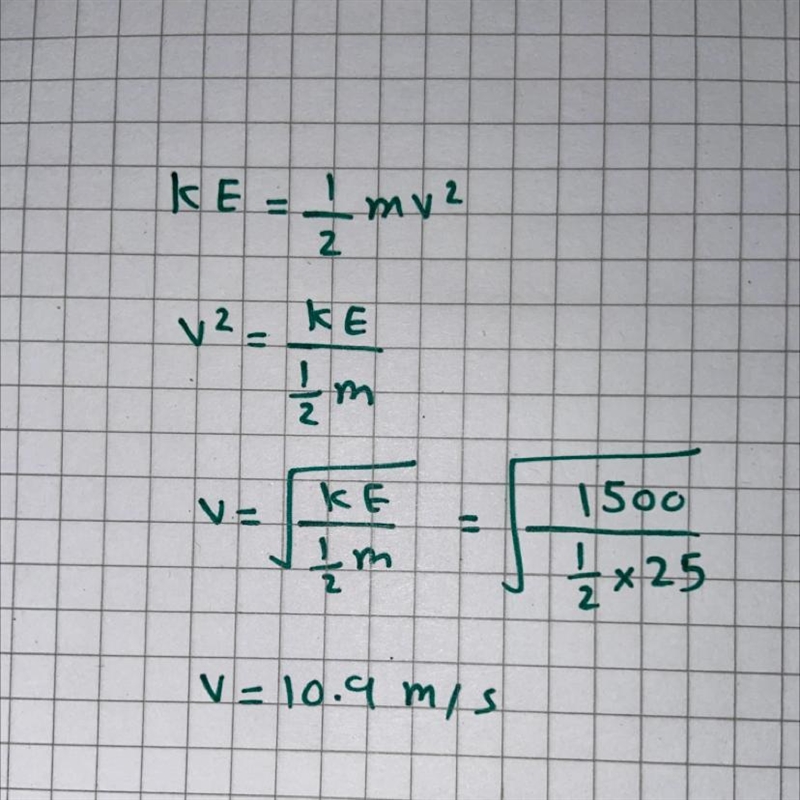 KE = 1/2 mv²
v² = KE / (1/2 m)
v = √(KE / (1/2 m)) = √(1500 / (1/2 × 25))
v = 10.9 m/s